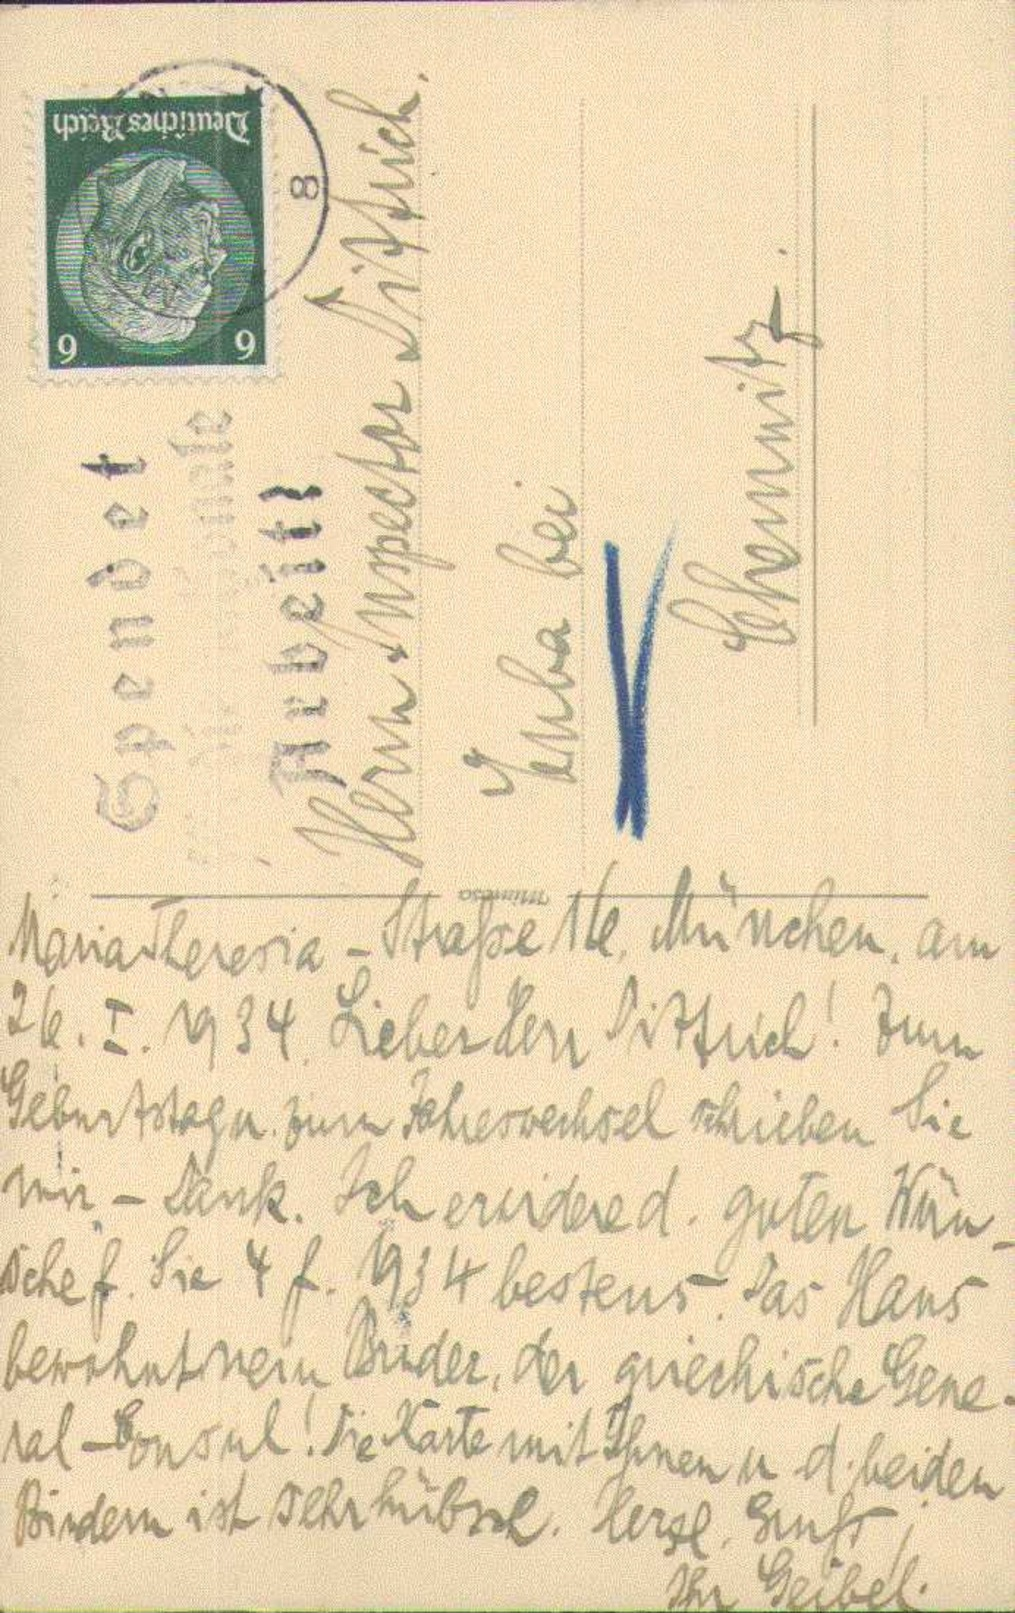 Deutsches Reich
6 6
8
Spendet
Arbeit!
Herrn Inspector Dittrich.
bei
Chemnitz.
Mimosa
Maria Theresia - Straße 16, München, am
26. I. 1934. Lieber Herr Dittrich! Zum
Geburtstag u. zum Jahreswechsel schrieben Sie
mir - Dank. Ich erwidere d. guten Wün-
sche f. Sie 4 f. 1934 bestens. Das Haus
bewohnt mein Bruder, der griechische Gene-
ral-Consul! Die Karte mit Ihnen u d. beiden
ist sehr hübsch. Herzl. Gruß!
Ihr Geibel.